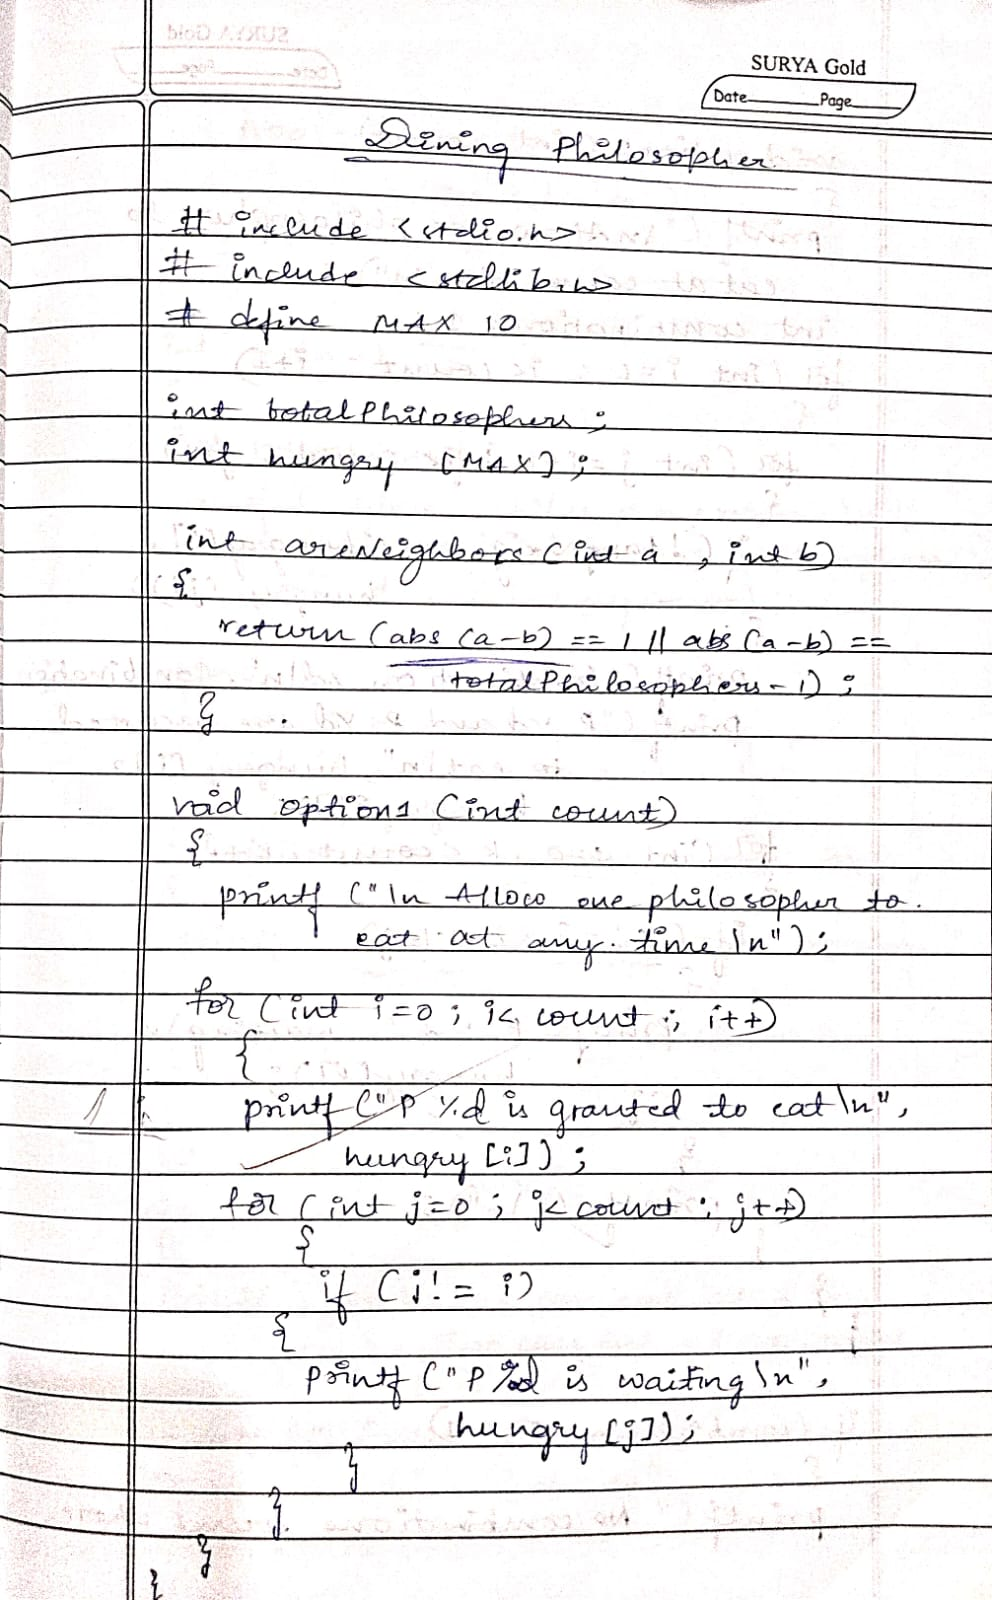 SURYA Gold
Date Page
Dining Philosopher
# include <stdio.h>
# include <stdlib.h>
# define MAX 10
int totalPhilosophers ;
int hungry [MAX] ;
int areNeighbors (int a , int b)
{
return (abs (a-b) == 1 || abs (a-b) ==
totalPhilosophers - 1) ;
}
void option1 (int count)
{
printf ("\n Alloco one philosopher to
eat at any time \n") ;
for (int i=0 ; i< count ; i++)
{
printf ("P %d is granted to eat \n",
hungry [i]) ;
for (int j=0 ; j< count ; j++)
{
if (j! = i)
{
printf ("P %d is waiting \n",
hungry [j]) ;
}
}
}
}